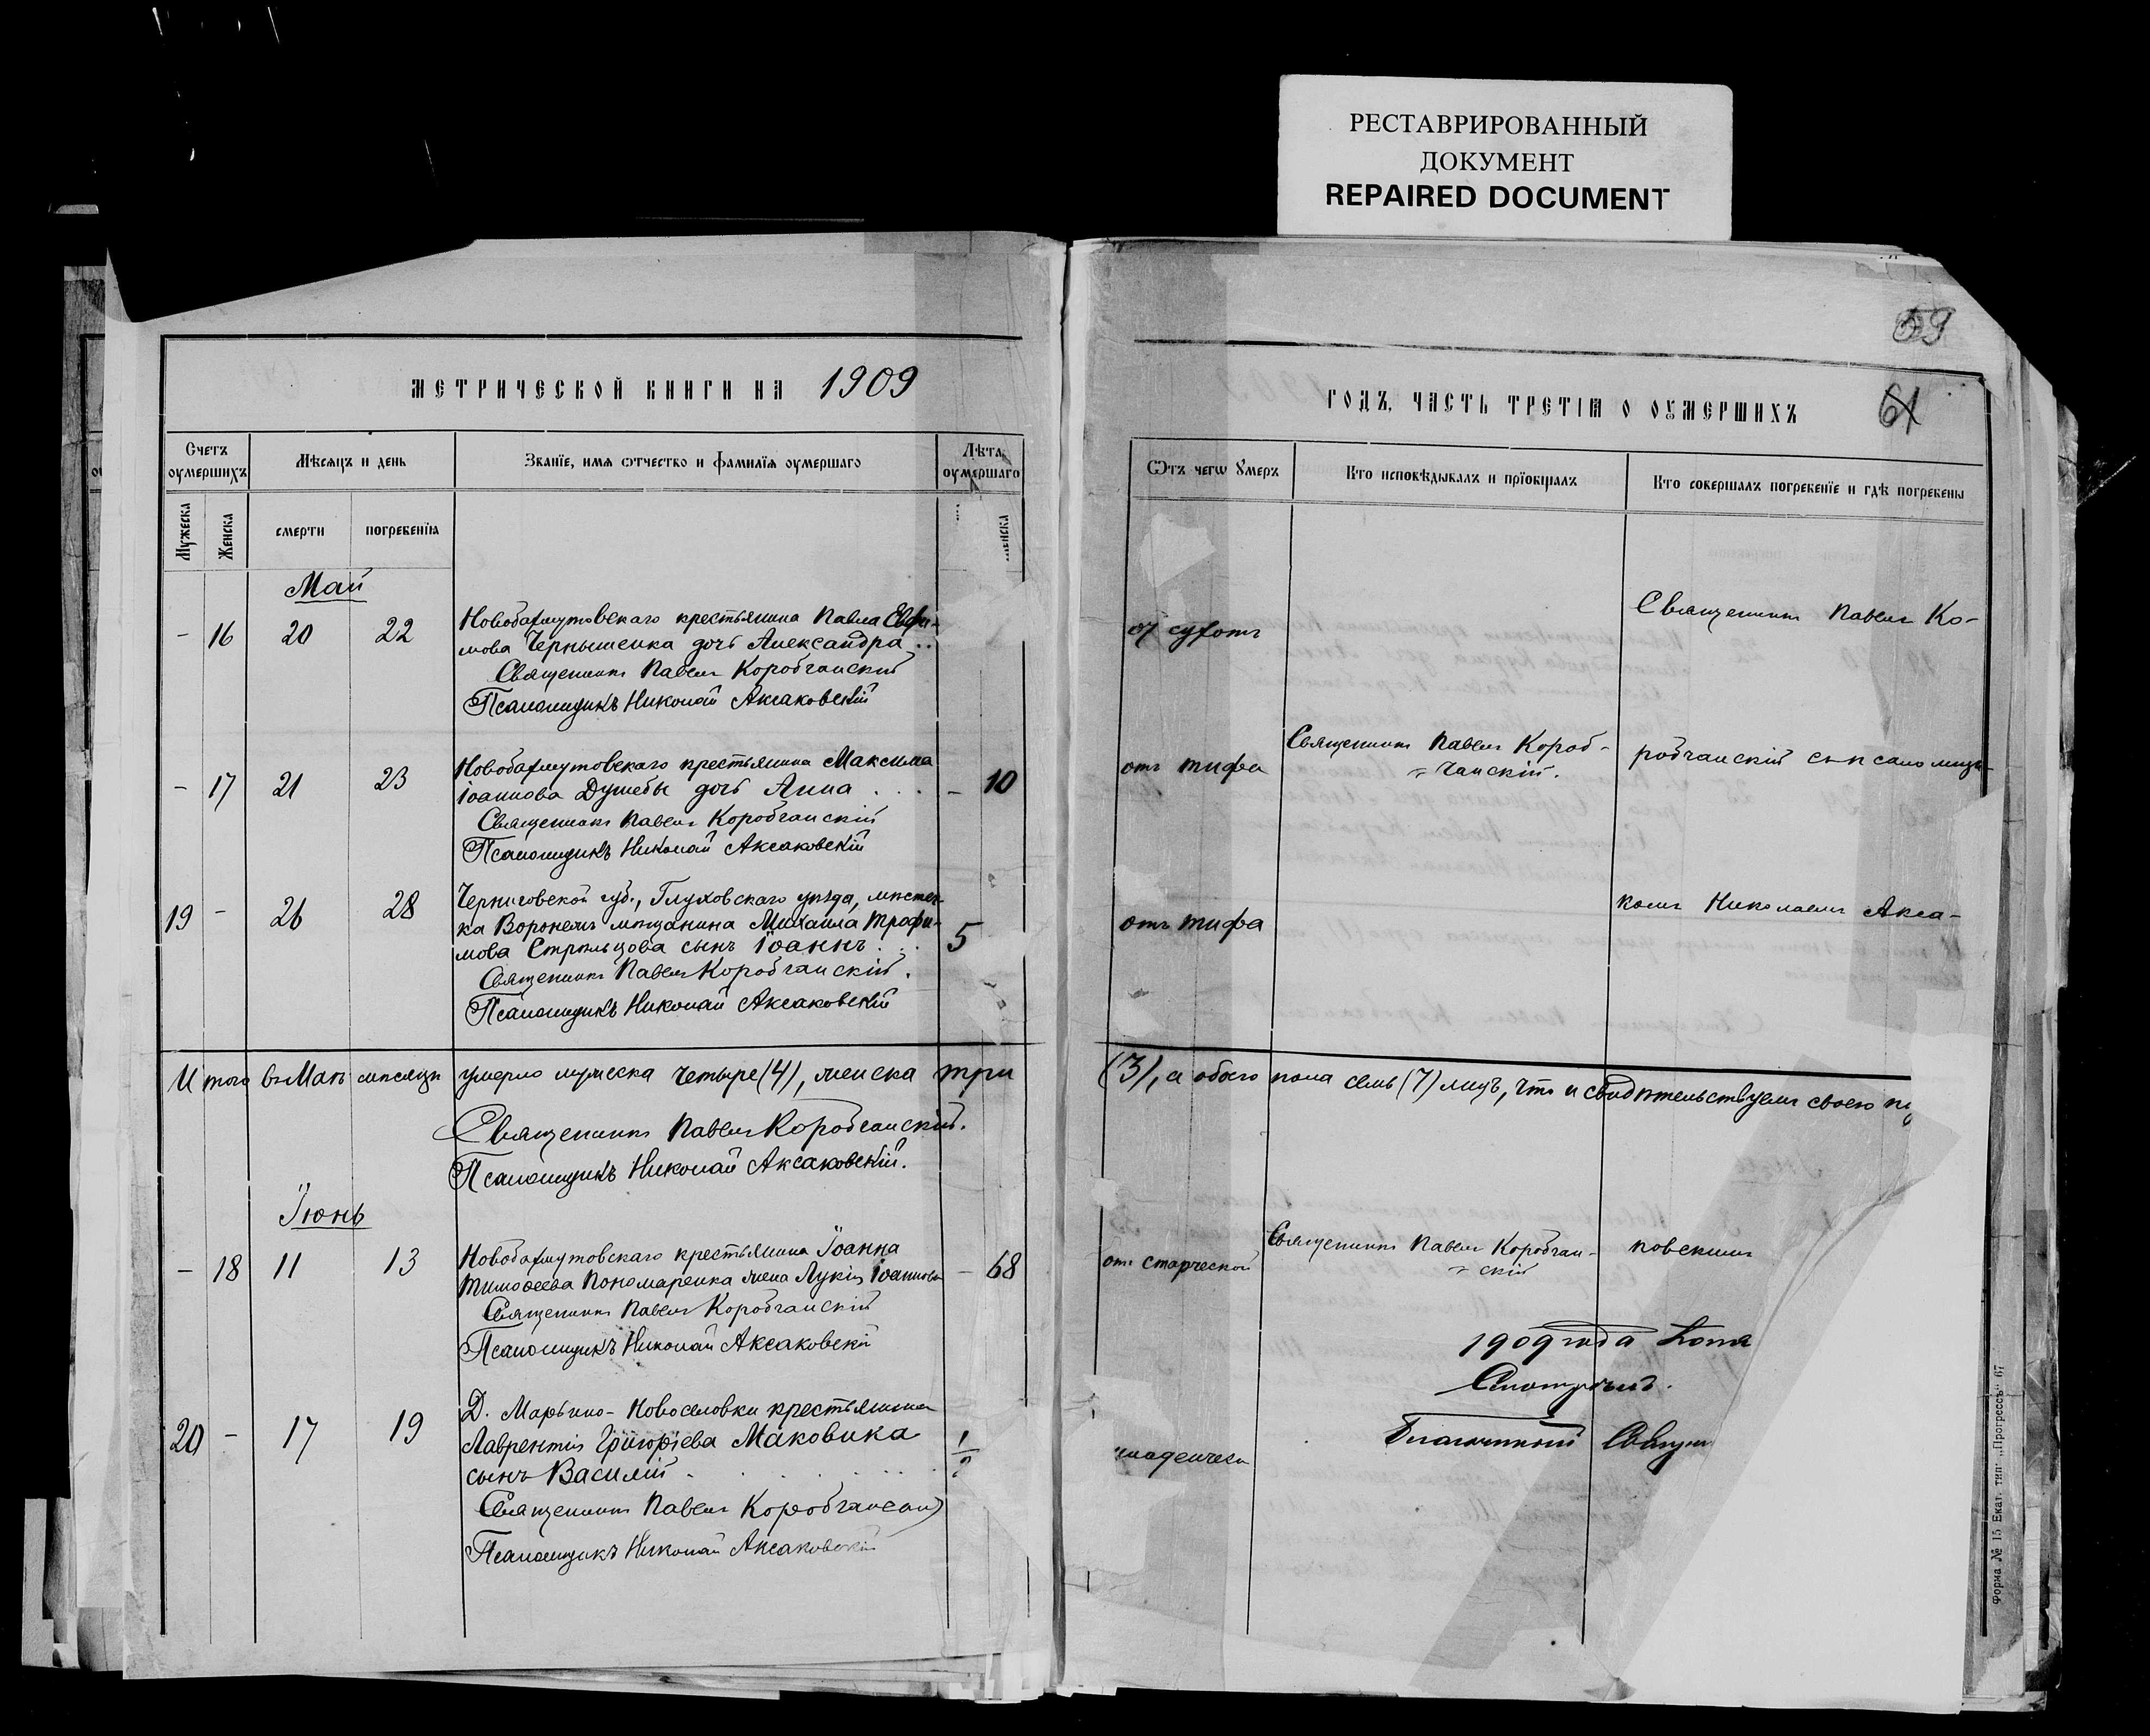 РЕСТАВРИРОВАННЫЙ
ДОКУМЕНТ
REPAIRED DOCUMENT
59
61
МЕТРИЧЕСКОЙ КНИГИ НА 1909
ГОДЪ, ЧАСТЬ ТРЕТІѦ О ОУМЕРШИХЪ
Счетъ оумершихъ
Мѣсѧцъ и день
Званїе, имѧ ѿтчество и фамилїѧ оумершаго
Лѣта оумершаго
Мужеска
Женска
смерти
погребенїѧ
Ѿтъ чегѡ Ꙋмеръ
Кто исповѣдывалъ и прїобщалъ
Кто совершалъ погребенїе и гдѣ погребены
Май
- 16 20 22 Новобахмутовскаго крестьянина Павла Евфи-
мова Чернышенка дочь Александра ..
Священникъ Павелъ Коробчанскій
Псаломщикъ Николай Аксаковскій
от сухотъ
Священникъ Павелъ Ко-
- 17 21 23 Новобахмутовскаго крестьянина Максима
Іоаннова Дужебы дочь Анна . . . - 10
Священникъ Павелъ Коробчанскій
Псаломщикъ Николай Аксаковскій
отъ тифа
Священникъ Павелъ Короб-
чанскій.
робчанскій съ псаломщи-
19 - 26 28 Черниговской губ., Глуховскаго уѣзда, мѣстеч-
ка Воронежъ мѣщанина Михаила Трофи-
мова Стрѣльцова сынъ Іоаннъ . . . 5
Священникъ Павелъ Коробчанскій.
Псаломщикъ Николай Аксаковскій
отъ тифа
комъ Николаемъ Акса-
Итого въ Маѣ мѣсяцѣ умерло мужеска четыре (4), женска три (3), а обоего пола семь (7) лицъ, что и свидѣтельствуемъ своею
Священникъ Павелъ Коробчанскій.
Псаломщикъ Николай Аксаковскій.
Іюнь
- 18 11 13 Новобахмутовскаго крестьянина Іоанна
Тимоѳеева Пономаренка жена Лукія Іоаннова - 68
Священникъ Павелъ Коробчанскій
Псаломщикъ Николай Аксаковскій
отъ старческой
Священникъ Павелъ Коробчан-
скій
ковскимъ
1909 года
20 - 17 19 Д. Марьино-Новоселовки крестьянина
Лаврентія Григорьева Маковика
сынъ Василій . . . . . . .
Священникъ Павелъ Коробчанскій
Псаломщикъ Николай Аксаковскій
Благочинный
Форма № 15 Екат. тип. „Прогрессъ" 67